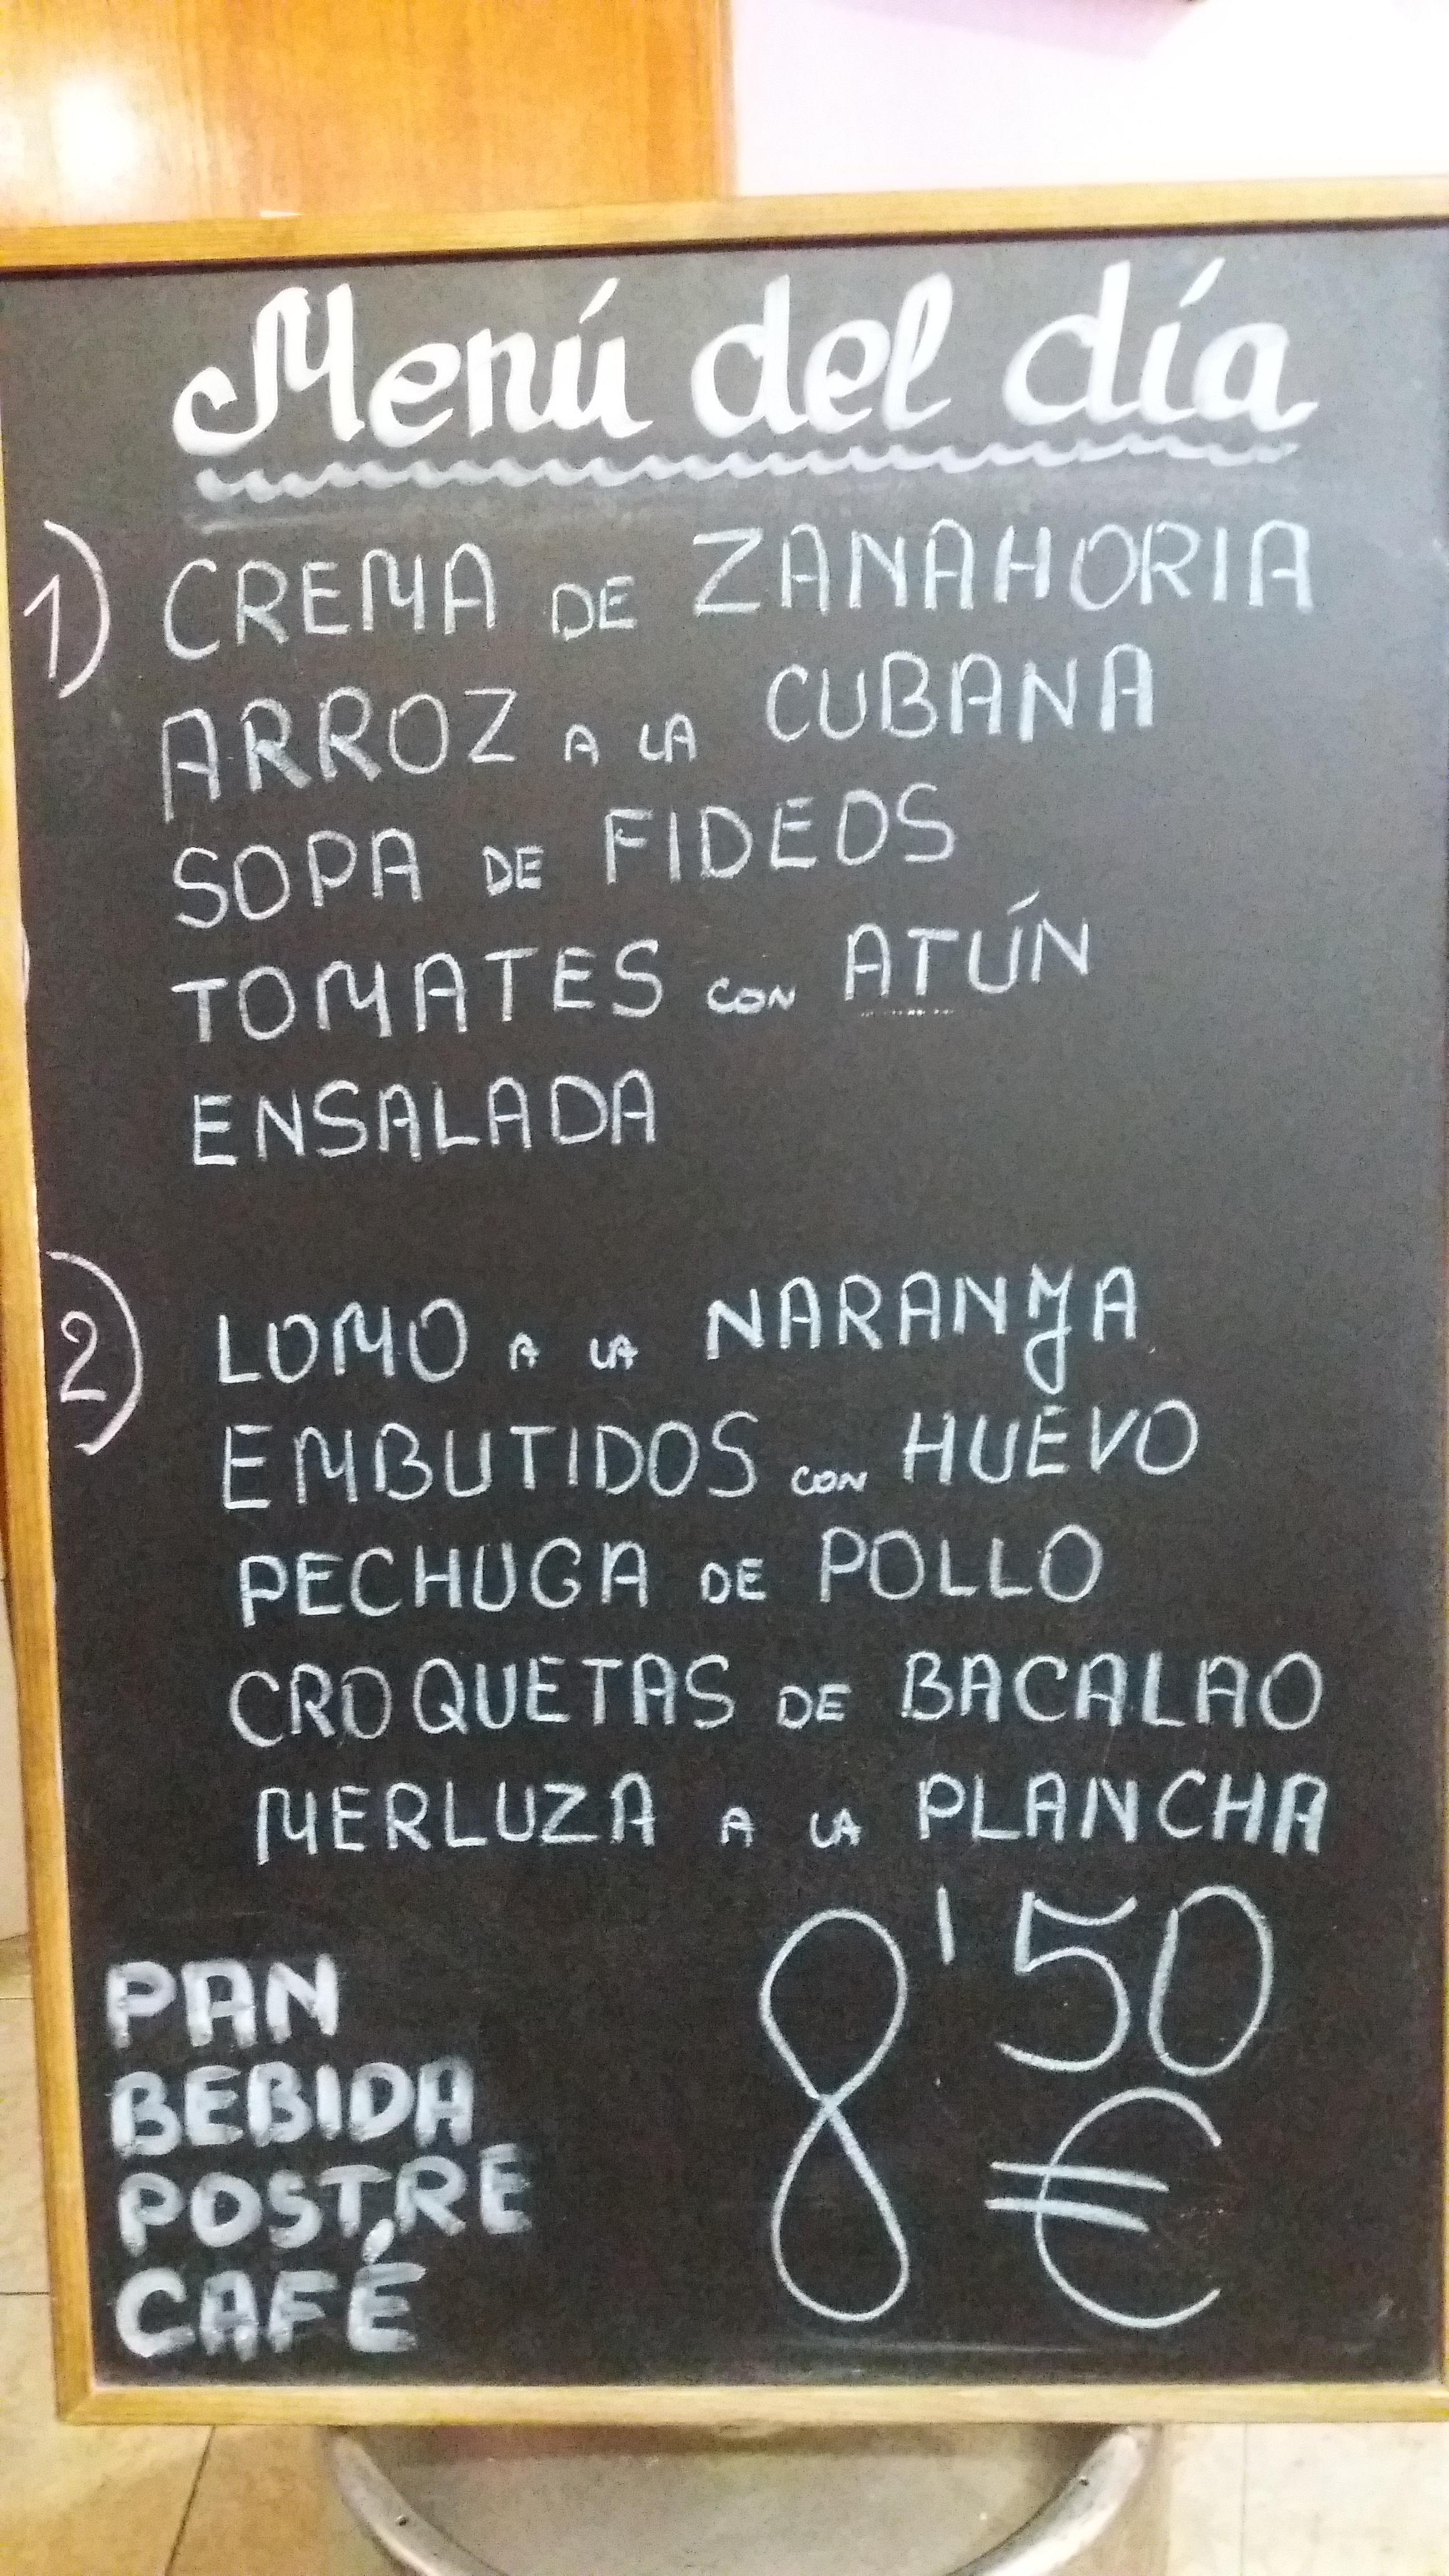 Menú del día
1) CREMA DE ZANAHORIA
ARROZ A LA CUBANA
SOPA DE FIDEOS
TOMATES CON ATÚN
ENSALADA
2) LOMO A LA NARANJA
EMBUTIDOS CON HUEVO
PECHUGA DE POLLO
CROQUETAS DE BACALAO
MERLUZA A LA PLANCHA
PAN
BEBIDA
POSTRE
CAFÉ
8'50
€